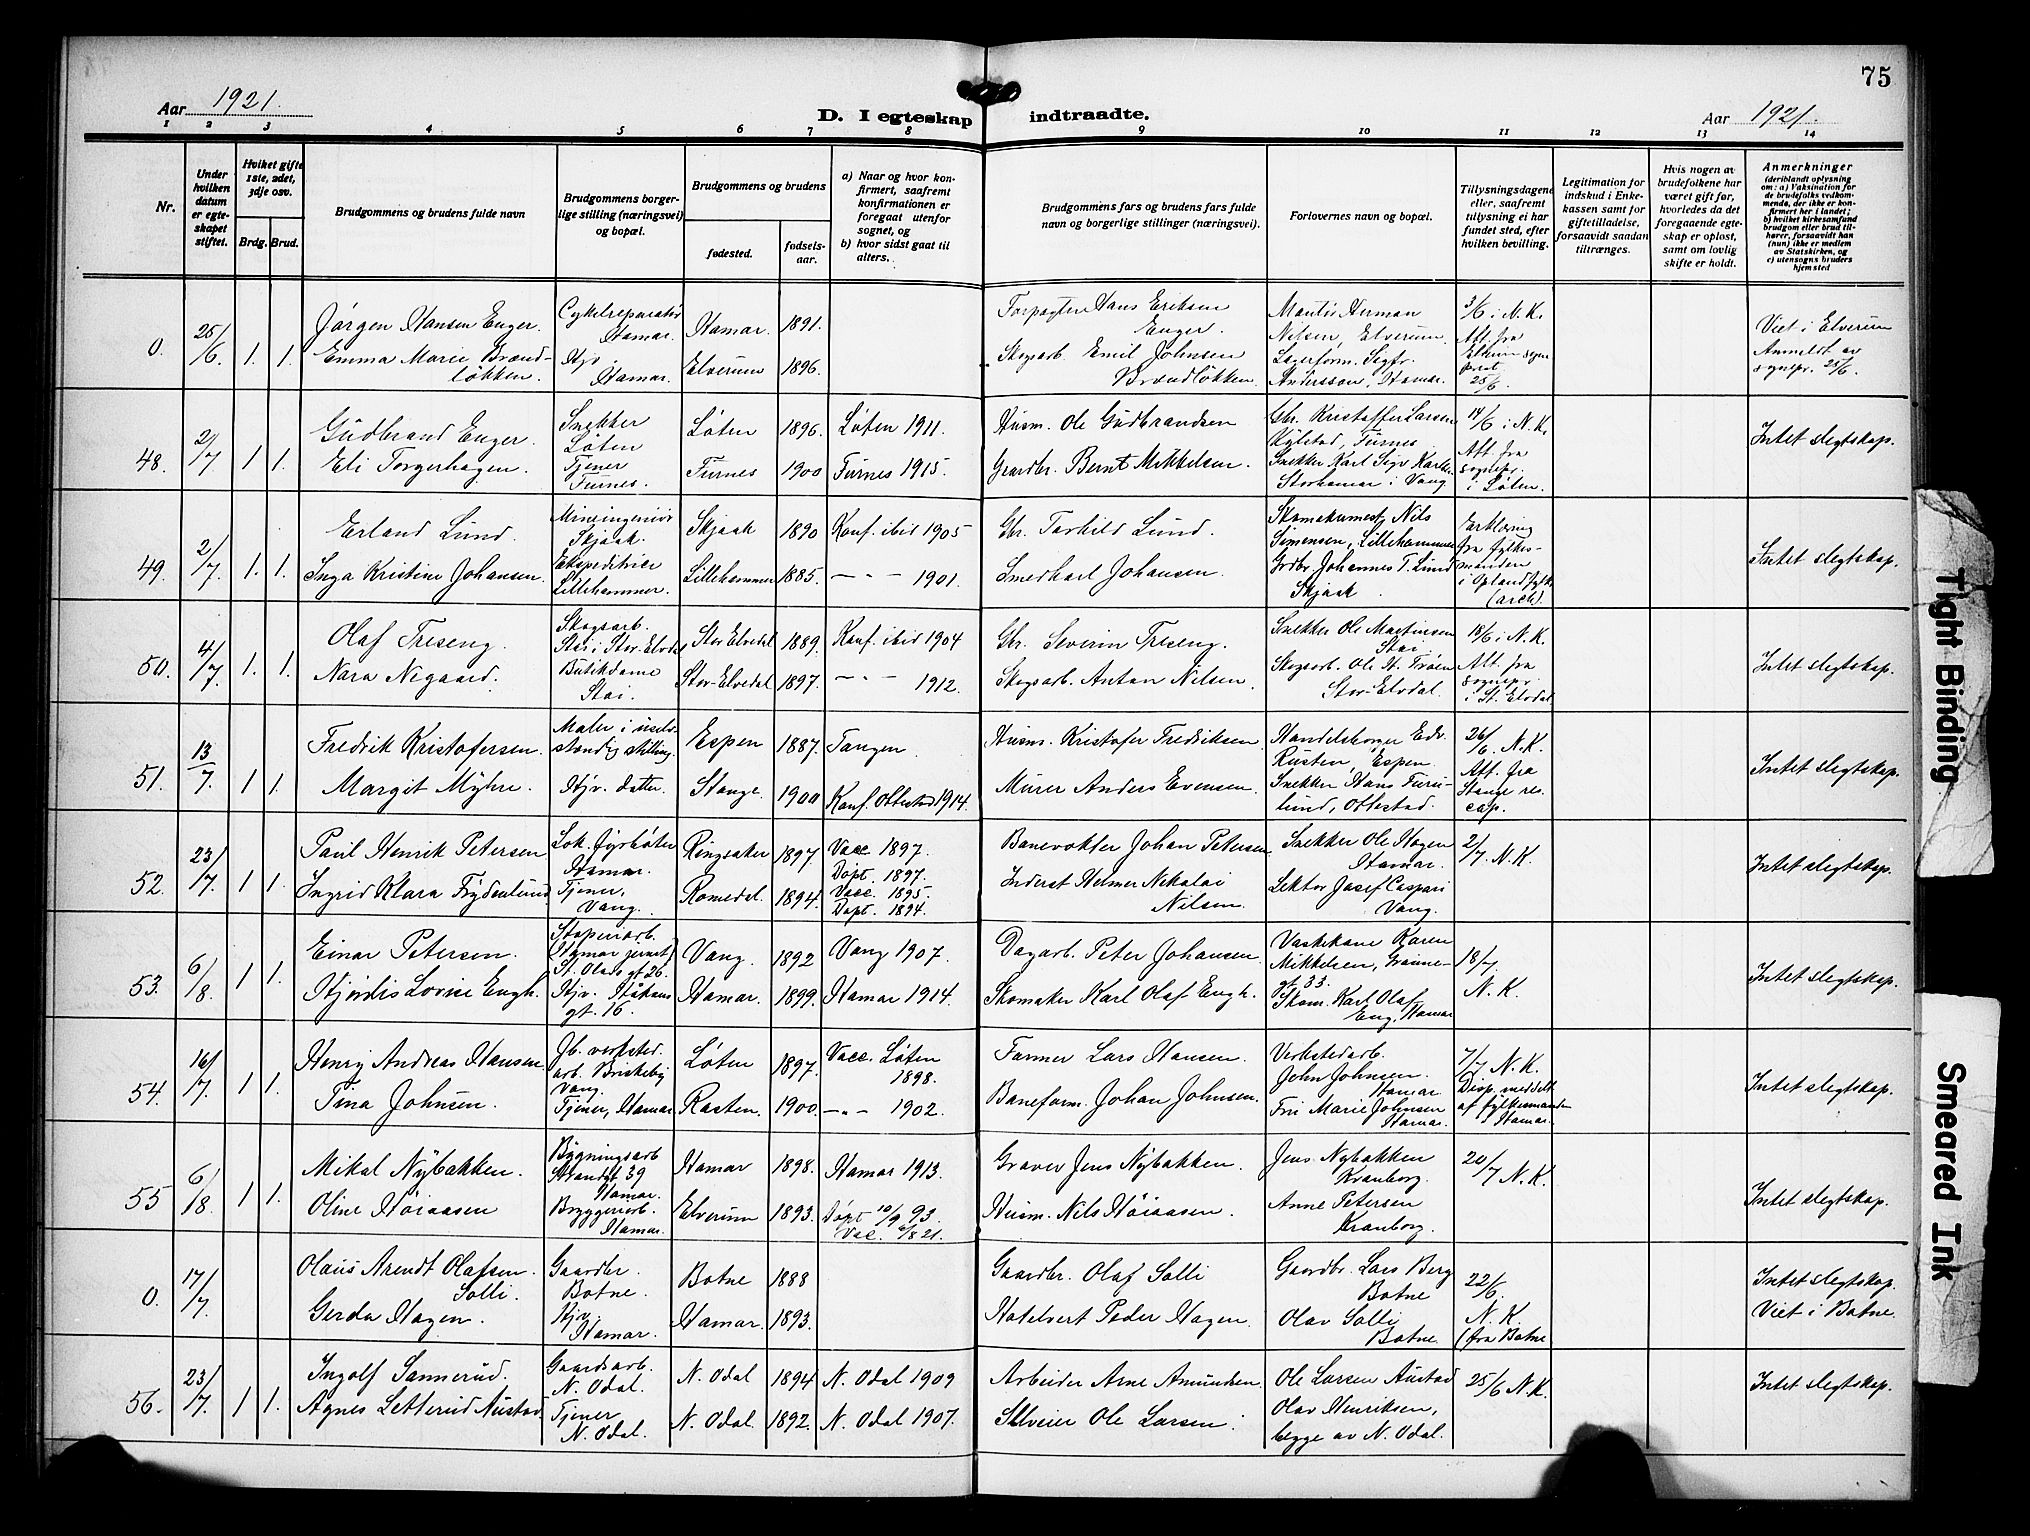 75
Aar 1921.
D. I egteskap indtraadte.
Aar 1921.
1 2 3 4 5 6 7 8 9 10 11 12 13 14
Nr.
Under hvilken datum er egteskapet stiftet.
Hviket gifte 1ste, 2det, 3dje osv.
Brdg. Brud.
Brudgommens og brudens fulde navn
Brudgommens borgerlige stilling (næringsvei) og bopæl.
Brudgommens og brudens
fødested.
fødselsaar.
a) Naar og hvor konfirmert, saafremt konfirmationen er foregaat utenfor sognet, og
b) hvor sidst gaat til alters.
Brudgommens fars og brudens fars fulde navn og borgerlige stillinger (næringsvei).
Forlovernes navn og bopæl.
Tillysningsdagene eller, saafremt tillysning ei har fundet sted, efter hvilken bevilling.
Legitimation for indskud i Enkekassen samt for giftetilladelse, forsaavidt saadan tiltrænges.
Hvis nogen av brudefolkene har været gift før, hvorledes da det foregaaende egteskap er opløst, samt om lovlig skifte er holdt.
Anmerkninger
(deriblandt oplysning om: a) Vaksination for de brudefolks vedkommende, der ikke er konfirmert her i landet; b) hvilket kirkesamfund brudgom eller brud tilhører, forsaavidt han (hun) ikke er medlem av Statskirken, og c) utensogns bruders hjemsted
0. 25/6 1. 1. Jørgen Hansen Enger. Cykelreparatør Hamar. Hamar. 1891. Forpagter Hans Eriksen Enger. Mautis Herman Nilsen, Elverum. 3/6 i N.K. Att. fra Elverum sogneprest 25/6. Viet i Elverum Anmeldt av sognepr. 25/6.
Emma Marie Brændløkken. Hjv. Hamar. Elverum 1896. Skogsarb. Emil Johnsen Brændløkken. Lagerform. Sigfr. Andersson, Hamar.
48. 2/7 1 1. Gudbrand Enger. Snekker Løten Løten 1896. Løten 1911. Husm. Ole Gudbrandsen Gbr. Kristoffer Larsen Kylstad, Furnes 14/6 i N.K. Att. fra sognepr. i Løten. Intet slegtskap.
Eli Torgerhagen. Tjener Furnes. Furnes 1900 Furnes 1915. Gaardbr. Bernt Mikkelsen. Snekker Karl Sigv. Karlsen Storhamar i Vang
49. 2/7 1. 1. Erland Lund. Mineingeniør Skjaak. Skjaak 1890 Konf. ibid 1905 Gbr. Tarkild Lund. Skomakermest. Nils Simensen, Lillehammer Erklæring fra fylkesmanden i Oplandfylke (arch). Intet slegtskap.
Inga Kristine Johansen. Ekspeditrice Lillehammer. Lillehammer 1885. –"– 1901. Smed Karl Johansen. Grdbr. Johannes T. Lund Skjaak.
50. 4/7 1. 1. Olaf Treseng. Skogsarb. Stai i Stor-Elvdal Stor Elvedal 1889. Konf. ibid 1904 Gbr. Severin Treseng. Snekker Ole Martinsen Stai 18/6 i N.K. Att. fra sognepr. i St. Elvdal Intet slegtskap.
Nara Negaard. Butikdame Stai. Stor-Elvedal 1897. –"– 1912. Skogsarb. Anton Nilsen. Skogsarb. Ole H. Trøen Stor-Elvdal.
51. 13/7 1 1. Fredrik Kristofersen. Maler i uselvstændig stilling. Espen 1887. Tangen. Husm. Kristofer Fredriksen Handelsborger Edv. Rusten, Espen. 26/6. N.K. Att. fra Stange res. cap. Intet slegtskap.
Margit Myhre. Hjv. datter. Stange. 1900 Konf. Ottestad 1914. Murer Anders Evensen. Snekker Hans Furulund, Ottestad.
52. 23/7. 1 1. Paul Henrik Petersen Lok. fyrbøter Hamar. Ringsaker 1897 Vacc 1897. Døpt. 1897. Banevokter Johan Petersen. Snekker Ole Hagen Hamar. 2/7. N.K. Intet slegtskap.
Ingrid Klara Frydenlund Tjener, Vang. Romedal. 1894. Vacc. 1895. Døpt. 1894. Inderst Helmer Nikolai Nilsen. Lektor Josef Caspari Vang.
53. 6/8 1 1. Einar Petersen. Støperiarb. Hamar jernst. St. Olavs gt 26. Vang. 1892 Vang 1907. Dagarb. Peter Johansen. Vaskekone Karen Mikkelsen, Grønnegt 33. 18/7. N.K. Intet slegtskap.
Hjørdis Lovise Engh. Hjv. Håkons gt. 16. Hamar. 1899. Hamar 1914. Skomaker Karl Olaf Engh. Skom. Karl Olaf Eng, Hamar
54. 16/7. 1 1. Henry Andreas Hansen Jb. verksted. arb. Briskeby Vang Løten 1897. Vacc. Løten 1898. Farmer Lars Hansen. Verkstedarb. John Johnsen. Hamar 7/7 N.K. Disp. meddelt af fylkesmanden Hamar. Intet slegtskap.
Tina Johnsen. Tjener, Hamar Rasten. 1900. –"– 1902. Baneform. Johan Johnsen. Fru Marie Johnsen Hamar.
55 6/8. 1 1. Mikal Nybakken. Bygningsarb Strandgt 39 Hamar. Hamar 1898. Hamar 1913. Graver Jens Nybakken. Jens Nybakken Kranborg. 20/7 N.K. Intet slegtskap.
Oline Høiaasen Bryggeriarb. Hamar. Elverum 1893. Døpt 10/9 93. Vac. 6/8 21. Husm. Nils Høiaasen. Anne Petersen Kranborg.
0. 17/7 Olaus Arendt Olafsen Solli. Gaardbr. Botne. Botne 1888 Gaardbr. Olaf Solli Gaardbr. Lars Berg Botne 22/6. N.K. (fra Botne Intet slegtskap. Viet i Botne.
Gerda Hagen. Hjv. Hamar. Hamar. 1893. Hotelvert Peder Hagen. Olav Solli Botne.
56. 23/7. 1 1. Ingolf Sannerud. Gaardsarb. N. Odal. N. Odal 1894 N. Odal 1909 Arbeider Arne Amundsen. Ole Larsen Austad 25/6 N.K. Intet slegtskap.
Agnes Letterud Austad. Tjener N. Odal. N. Odal. 1892. N. Odal 1907. Ole Larsen. Olav Henriksen, begge av N. Odal.
Tight Binding
Smeared Ink